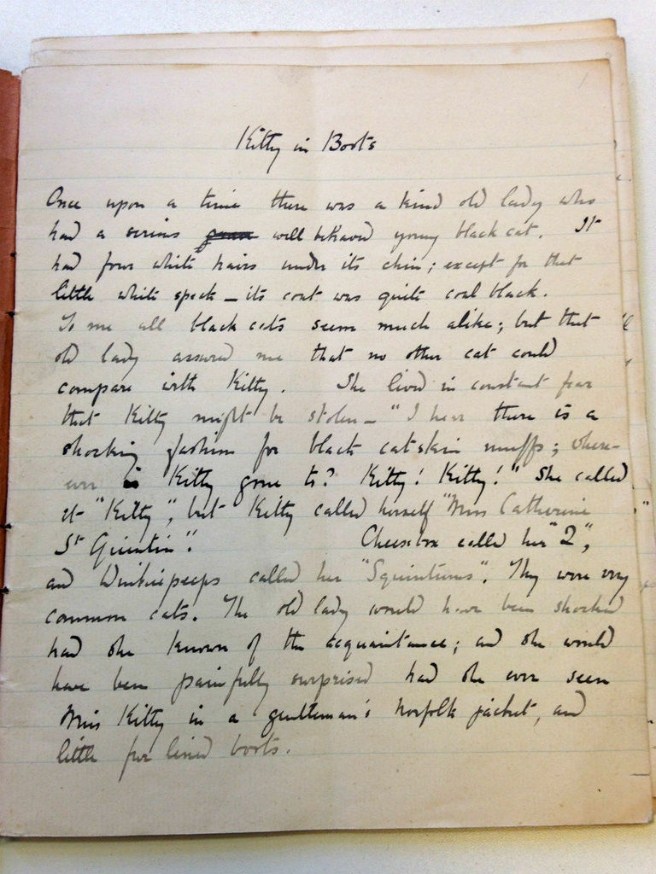 1
Kitty in Boots
Once upon a time there was a kind old lady who
had a serious well behaved young black cat. It
had four white hairs under its chin; except for that
little white speck _ its coat was quite coal black.
To me all black cats seem much alike; but that
old lady assured me that no other cat could
compare with Kitty. She lived in constant fear
that Kitty might be stolen _ "I hear there is a
shocking fashion for black catskin muffs; where-
ever is Kitty gone to? Kitty! Kitty!" She called
it "Kitty", but Kitty called herself "Miss Catherine
St Quintin". Cheesebox called her "Q",
and Winkiepeeps called her "Squintums". They were very
common cats. The old lady would have been shocked
had she known of the acquaintance; and she would
have been painfully surprised had she ever seen
Miss Kitty in a gentleman's norfolk jacket, and
little fur lined boots.